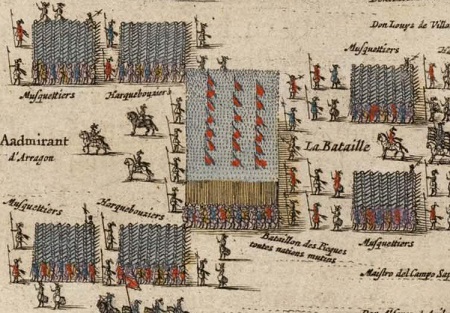 Don Loups de Villa
Musquettiers
Musquettiers
Harquebouziers
Aadmirant
d'Arragon
La Bataille
Musquettiers
Harquebouziers
Musquettiers
Bataillon des Picques
toutes nations mutins
Maistro del Campo Sap